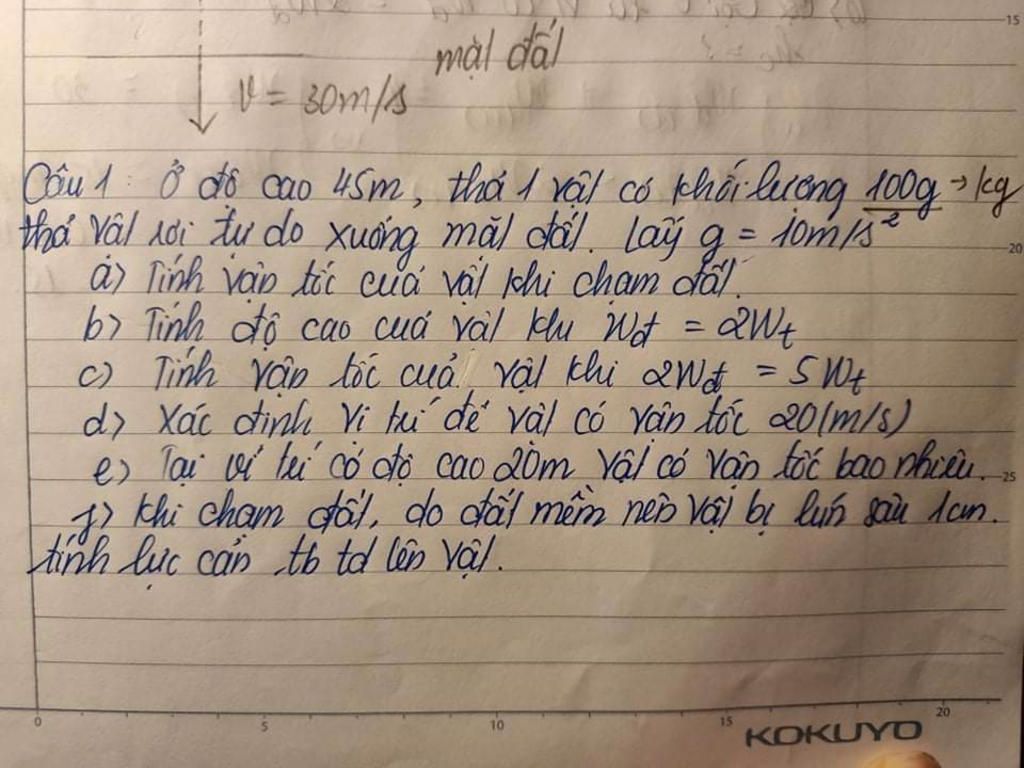 15
mặt đất
v = 30m/s
Câu 1: Ở độ cao 45m, thả 1 vật có khối lượng 100g → kg
thả vật rơi tự do xuống mặt đất. Lấy g = 10m/s²
20
a) Tính vận tốc của vật khi chạm đất.
b) Tính độ cao của vật khi Wđ = 2Wt
c) Tính vận tốc của vật khi 2Wđ = 5Wt
d) Xác định vị trí để vật có vận tốc 20(m/s)
e) Tại vị trí có độ cao 20m vật có vận tốc bao nhiêu.
25
f) Khi chạm đất, do đất mềm nên vật bị lún sâu 1cm.
tính lực cản tb td lên vật.
0 5 10 15 20
KOKUYO